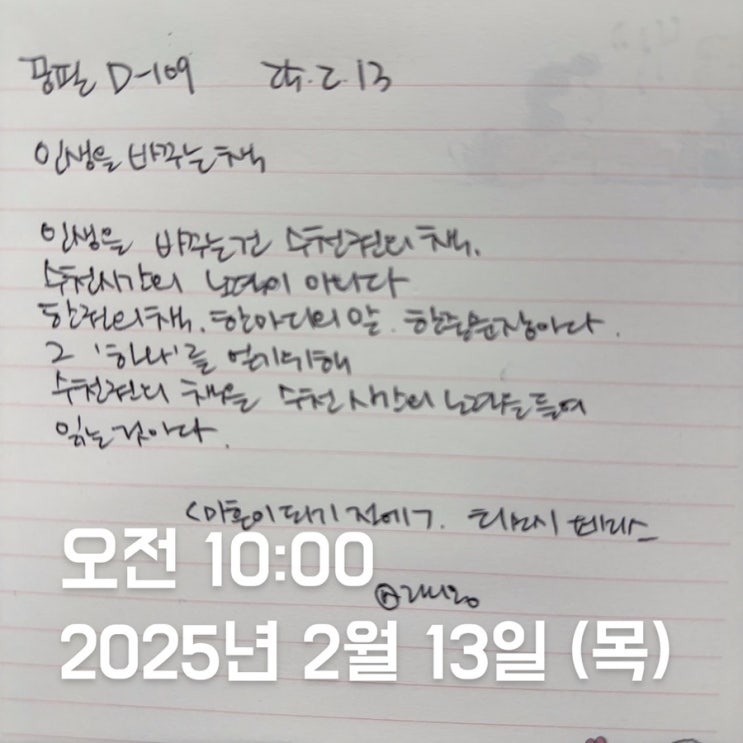 몽필 D-109 25.2.13
인생을 바꾸는 책
인생을 바꾸는건 수천권의 책,
수천시간의 노력이 아니다
한권의 책, 한마디의 말, 한 문장이다.
그 '하나'를 얻기위해
수천권의 책을 수천시간의 노력을 들여
읽는 것이다.
<마흔이 되기 전에>
오전 10:00
2025년 2월 13일 (목)